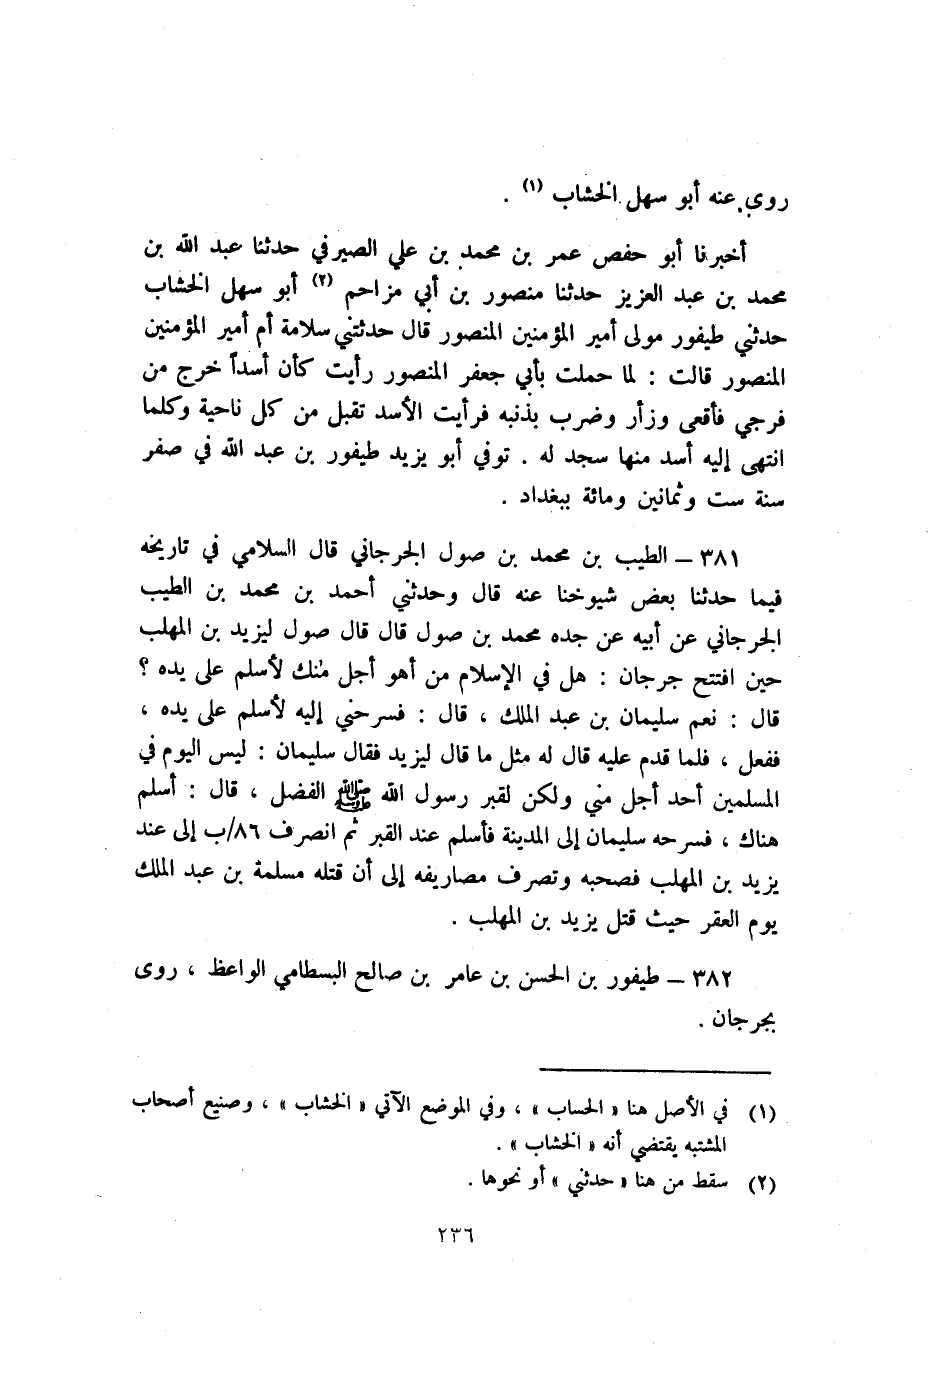 روى عنه أبو سهل الخشاب (١) .
أخبرنا أبو حفص عمر بن محمد بن علي الصيرفي حدثنا عبد الله بن
محمد بن عبد العزيز حدثنا منصور بن أبي مزاحم (٢) أبو سهل الخشاب
حدثني طيفور مولى أمير المؤمنين المنصور قال حدثتني سلامة أم أمير المؤمنين
المنصور قالت : لما حملت بأبي جعفر المنصور رأيت كأن أسداً خرج من
فرجي فأقعى وزأر وضرب بذنبه فرأيت الأسد تقبل من كل ناحية وكلما
انتهى إليه أسد منها سجد له . توفي أبو يزيد طيفور بن عبد الله في صفر
سنة ست وثمانين ومائة ببغداد .
٣٨١ – الطيب بن محمد بن صول الجرجاني قال السلامي في تاريخه
فيما حدثنا بعض شيوخنا عنه قال وحدثني أحمد بن محمد بن الطيب
الجرجاني عن أبيه عن جده محمد بن صول قال قال صول ليزيد بن المهلب
حين افتتح جرجان : هل في الإسلام من أهو أجل منك لأسلم على يده ؟
قال : نعم سليمان بن عبد الملك ، قال : فسرحني إليه لأسلم على يده ،
ففعل ، فلما قدم عليه قال له مثل ما قال ليزيد فقال سليمان : ليس اليوم في
المسلمين أحد أجل مني ولكن لقبر رسول الله ﷺ الفضل ، قال : أسلم
هناك ، فسرحه سليمان إلى المدينة فأسلم عند القبر ثم انصرف ٨٦/ب إلى عند
يزيد بن المهلب فصحبه وتصرف مصاريفه إلى أن قتله مسلمة بن عبد الملك
يوم العقر حيث قتل يزيد بن المهلب .
٣٨٢ – طيفور بن الحسن بن عامر بن صالح البسطامي الواعظ ، روى
بجرجان .
(١) في الأصل هنا « الحساب » ، وفي الموضع الآتي « الخشاب » ، وصنيع أصحاب
المشتبه يقتضي أنه « الخشاب » .
(٢) سقط من هنا « حدثني » أو نحوها .
٢٣٦